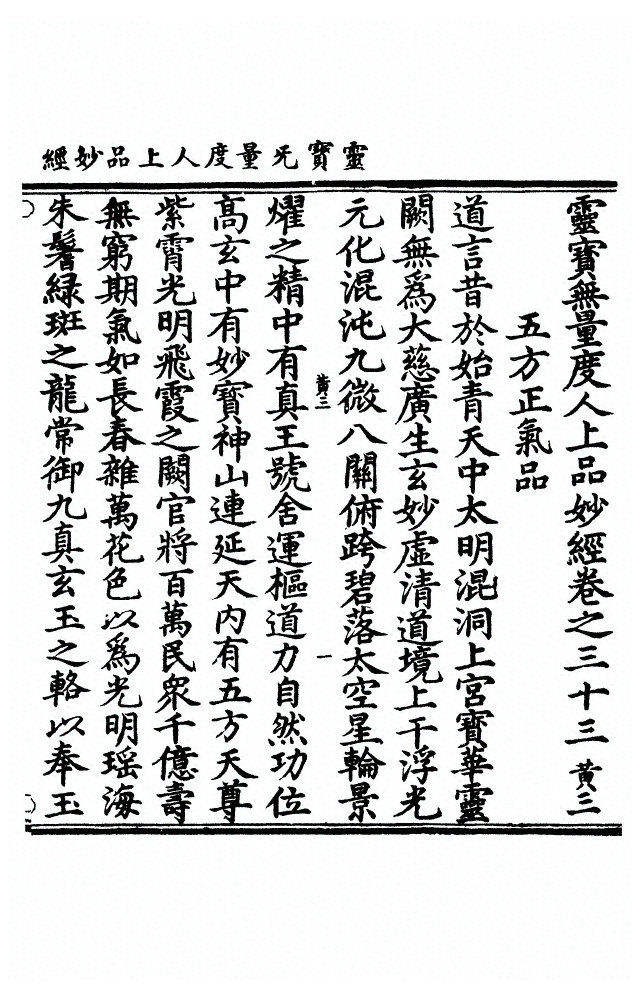 靈寶无量度人上品妙經
靈寶無量度人上品妙經卷之三十三 黃三
五方正氣品
道言昔於始青天中太明混洞上宮寶華靈
闕無爲大慈廣生玄妙虛清道境上干浮光
元化混沌九微八關俯跨碧落太空星輪景
黃三 一
燿之精中有真王號舍運樞道力自然功位
高玄中有妙寶神山連延天內有五方天尊
紫霄光明飛霞之闕官將百萬民衆千億壽
無窮期氣如長春雜萬花色以爲光明瑶海
朱鬐緑斑之龍常御九真玄玉之輅以奉玉